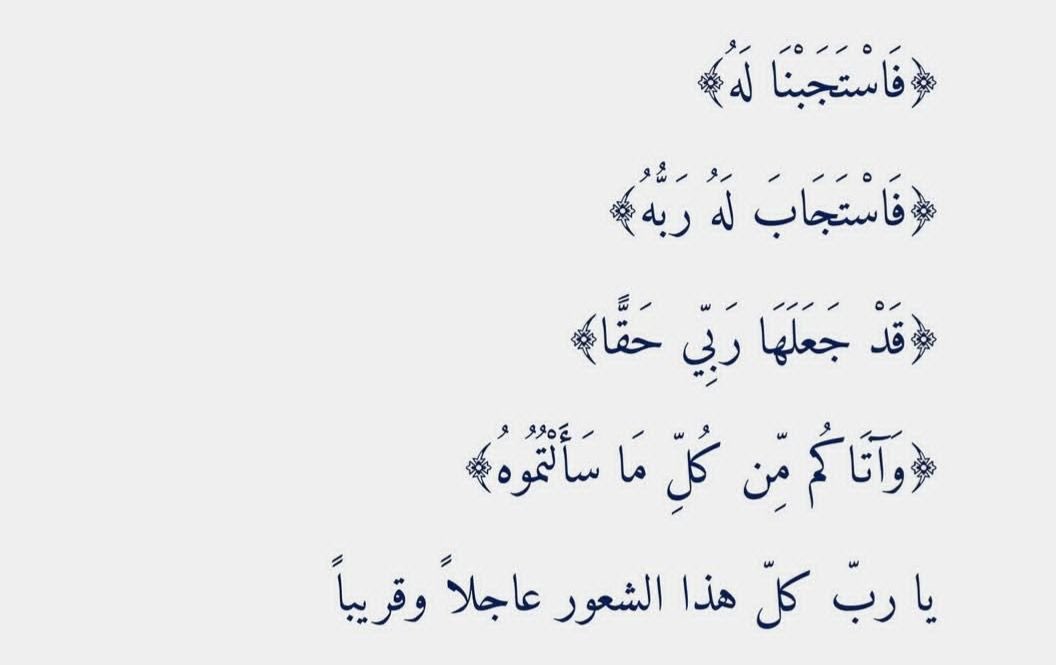 ﴿فَاسْتَجَبْنَا لَهُ﴾
﴿فَاسْتَجَابَ لَهُ رَبُّهُ﴾
﴿قَدْ جَعَلَهَا رَبِّي حَقًّا﴾
﴿وَآتَاكُم مِّن كُلِّ مَا سَأَلْتُمُوهُ﴾
يا ربّ كلّ هذا الشعور عاجلاً وقريباً